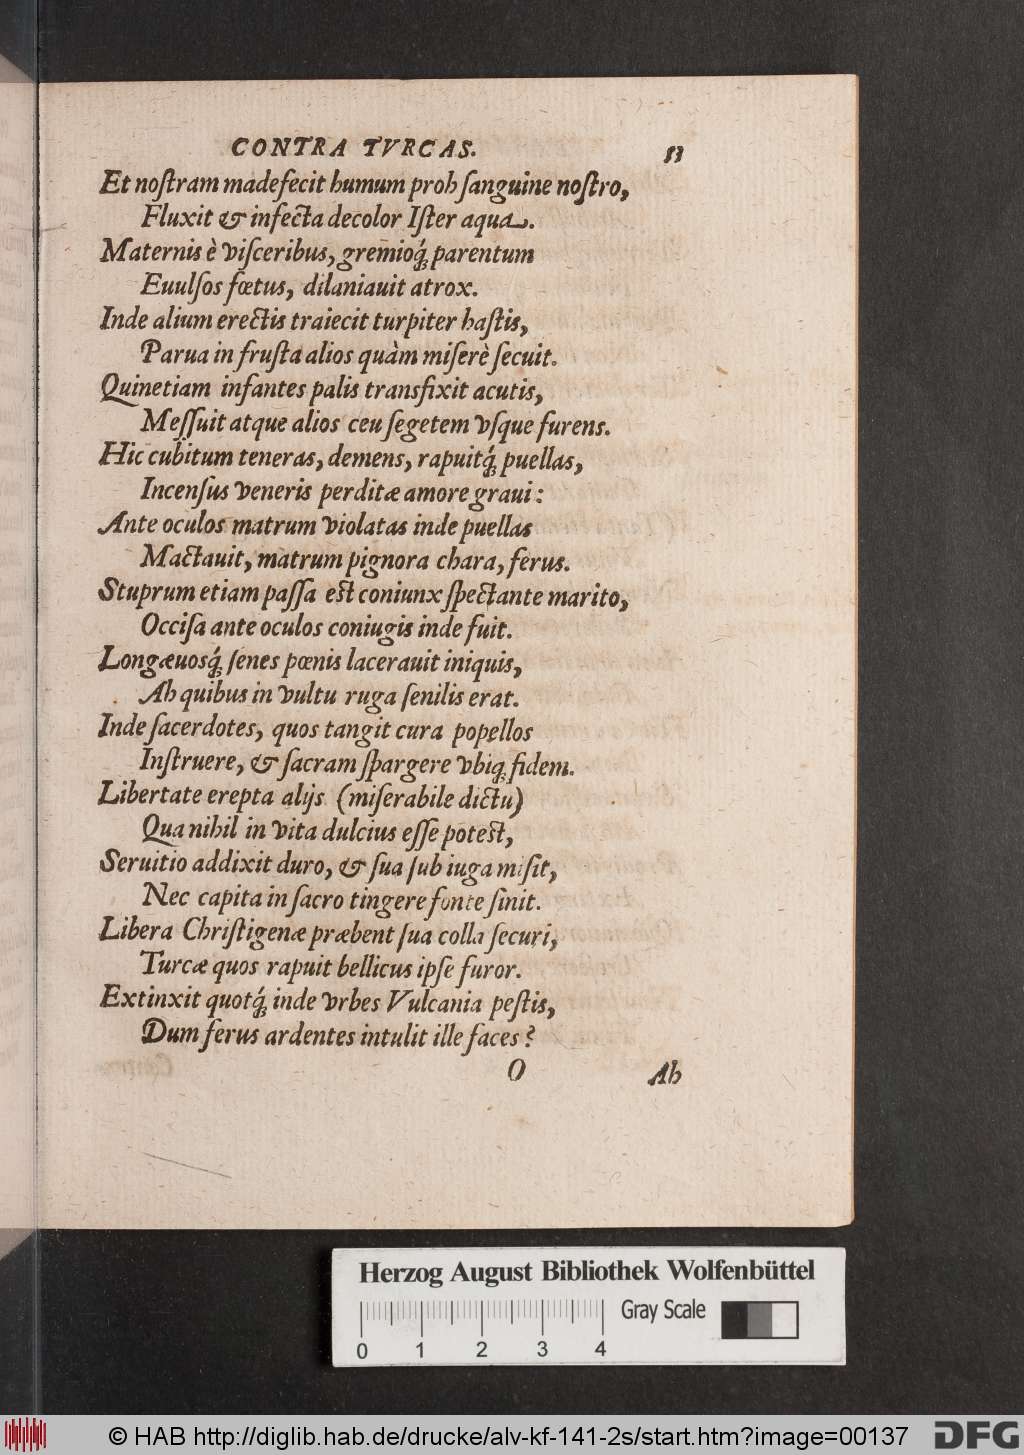 CONTRA TVRCAS. 53
Et noſtram madefecit humum proh ſanguine noſtro,
Fluxit & infecta decolor Iſter aqua.
Maternis è viſceribus, gremioq́; parentum
Euulſos fœtus, dilaniauit atrox.
Inde alium erectis traiecit turpiter haſtis,
Parua in fruſta alios quàm miſerè ſecuit.
Quinetiam infantes palis transfixit acutis,
Meſſuit atque alios ceu ſegetem vſque furens.
Hic cubitum teneras, demens, rapuitq́; puellas,
Incenſus veneris perditæ amore graui:
Ante oculos matrum violatas inde puellas
Mactauit, matrum pignora chara, ferus.
Stuprum etiam paſſa eſt coniunx ſpectante marito,
Occiſa ante oculos coniugis inde fuit.
Longæuosq́; ſenes pœnis lacerauit iniquis,
Ah quibus in vultu ruga ſenilis erat.
Inde ſacerdotes, quos tangit cura popellos
Inſtruere, & ſacram ſpargere vbiq; fidem.
Libertate erepta alijs (miſerabile dictu)
Qua nihil in vita dulcius eſſe poteſt,
Seruitio addixit duro, & ſua ſub iuga miſit,
Nec capita in ſacro tingere fonte ſinit.
Libera Chriſtigenæ præbent ſua colla ſecuri,
Turcæ quos rapuit bellicus ipſe furor.
Extinxit quotq́; inde vrbes Vulcania peſtis,
Dum ferus ardentes intulit ille faces?
O Ah
Herzog August Bibliothek Wolfenbüttel
Gray Scale
0 1 2 3 4
© HAB http://diglib.hab.de/drucke/alv-kf-141-2s/start.htm?image=00137
DFG